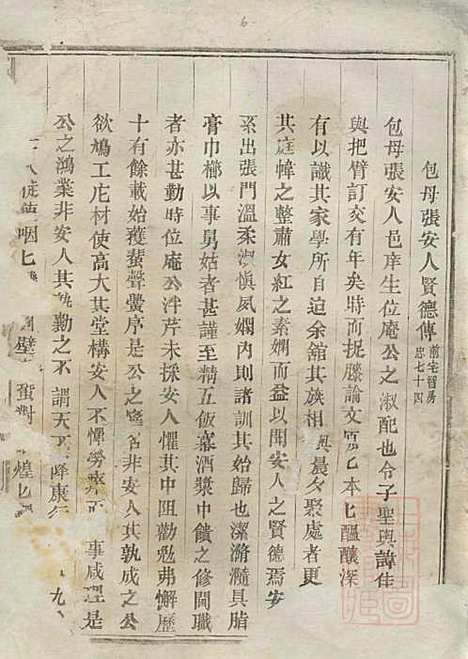 包母張安人賢德傳 前宅智房忠七十四
包母張安人邑庠生位庵公之淑配也令子聖與諱佳
與把臂訂交有年矣時而捉塵論文 本七醞釀深
有以識其家學所自迨余舘其族相 與晨夕聚處者更
其庭幃之整肅女紅之素嫻而益以聞安人之賢德焉安
系出張門溫柔淑愼夙嫻內則諸訓其始歸也潔瀡瀡具脂
膏巾櫛以事舅姑者甚謹至精五飯冪酒漿中饋之修間職
者亦甚勤時位庵公泮芹未採安人懼其中阻勸勉弗懈歷
十有餘載始獲蜚聲黌序是公之 名非安人其孰成之公
欲鳩工庀材使高大其堂構安人不憚勞瘁 事咸理是
公之鴻業非安人其 勤之不 謂天不 降康年 九
咽七 壁 蛩對 煌
6